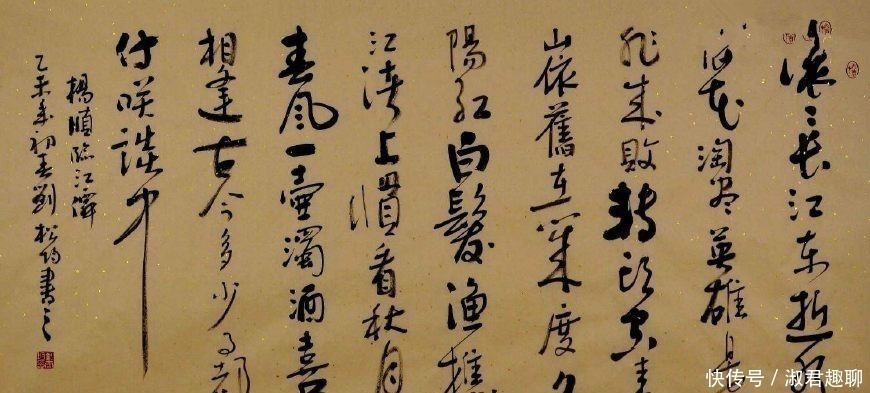 滚滚長江东逝水
浪花淘尽英雄是
非成敗转头空青
山依舊在几度夕
陽红白髮渔樵
江渚上慣看秋月
春风一壶濁酒喜
相逢古今多少事都
付笑谈中
楊慎临江僊
乙未年初春劉松書之
快传号 / 淑君趣聊